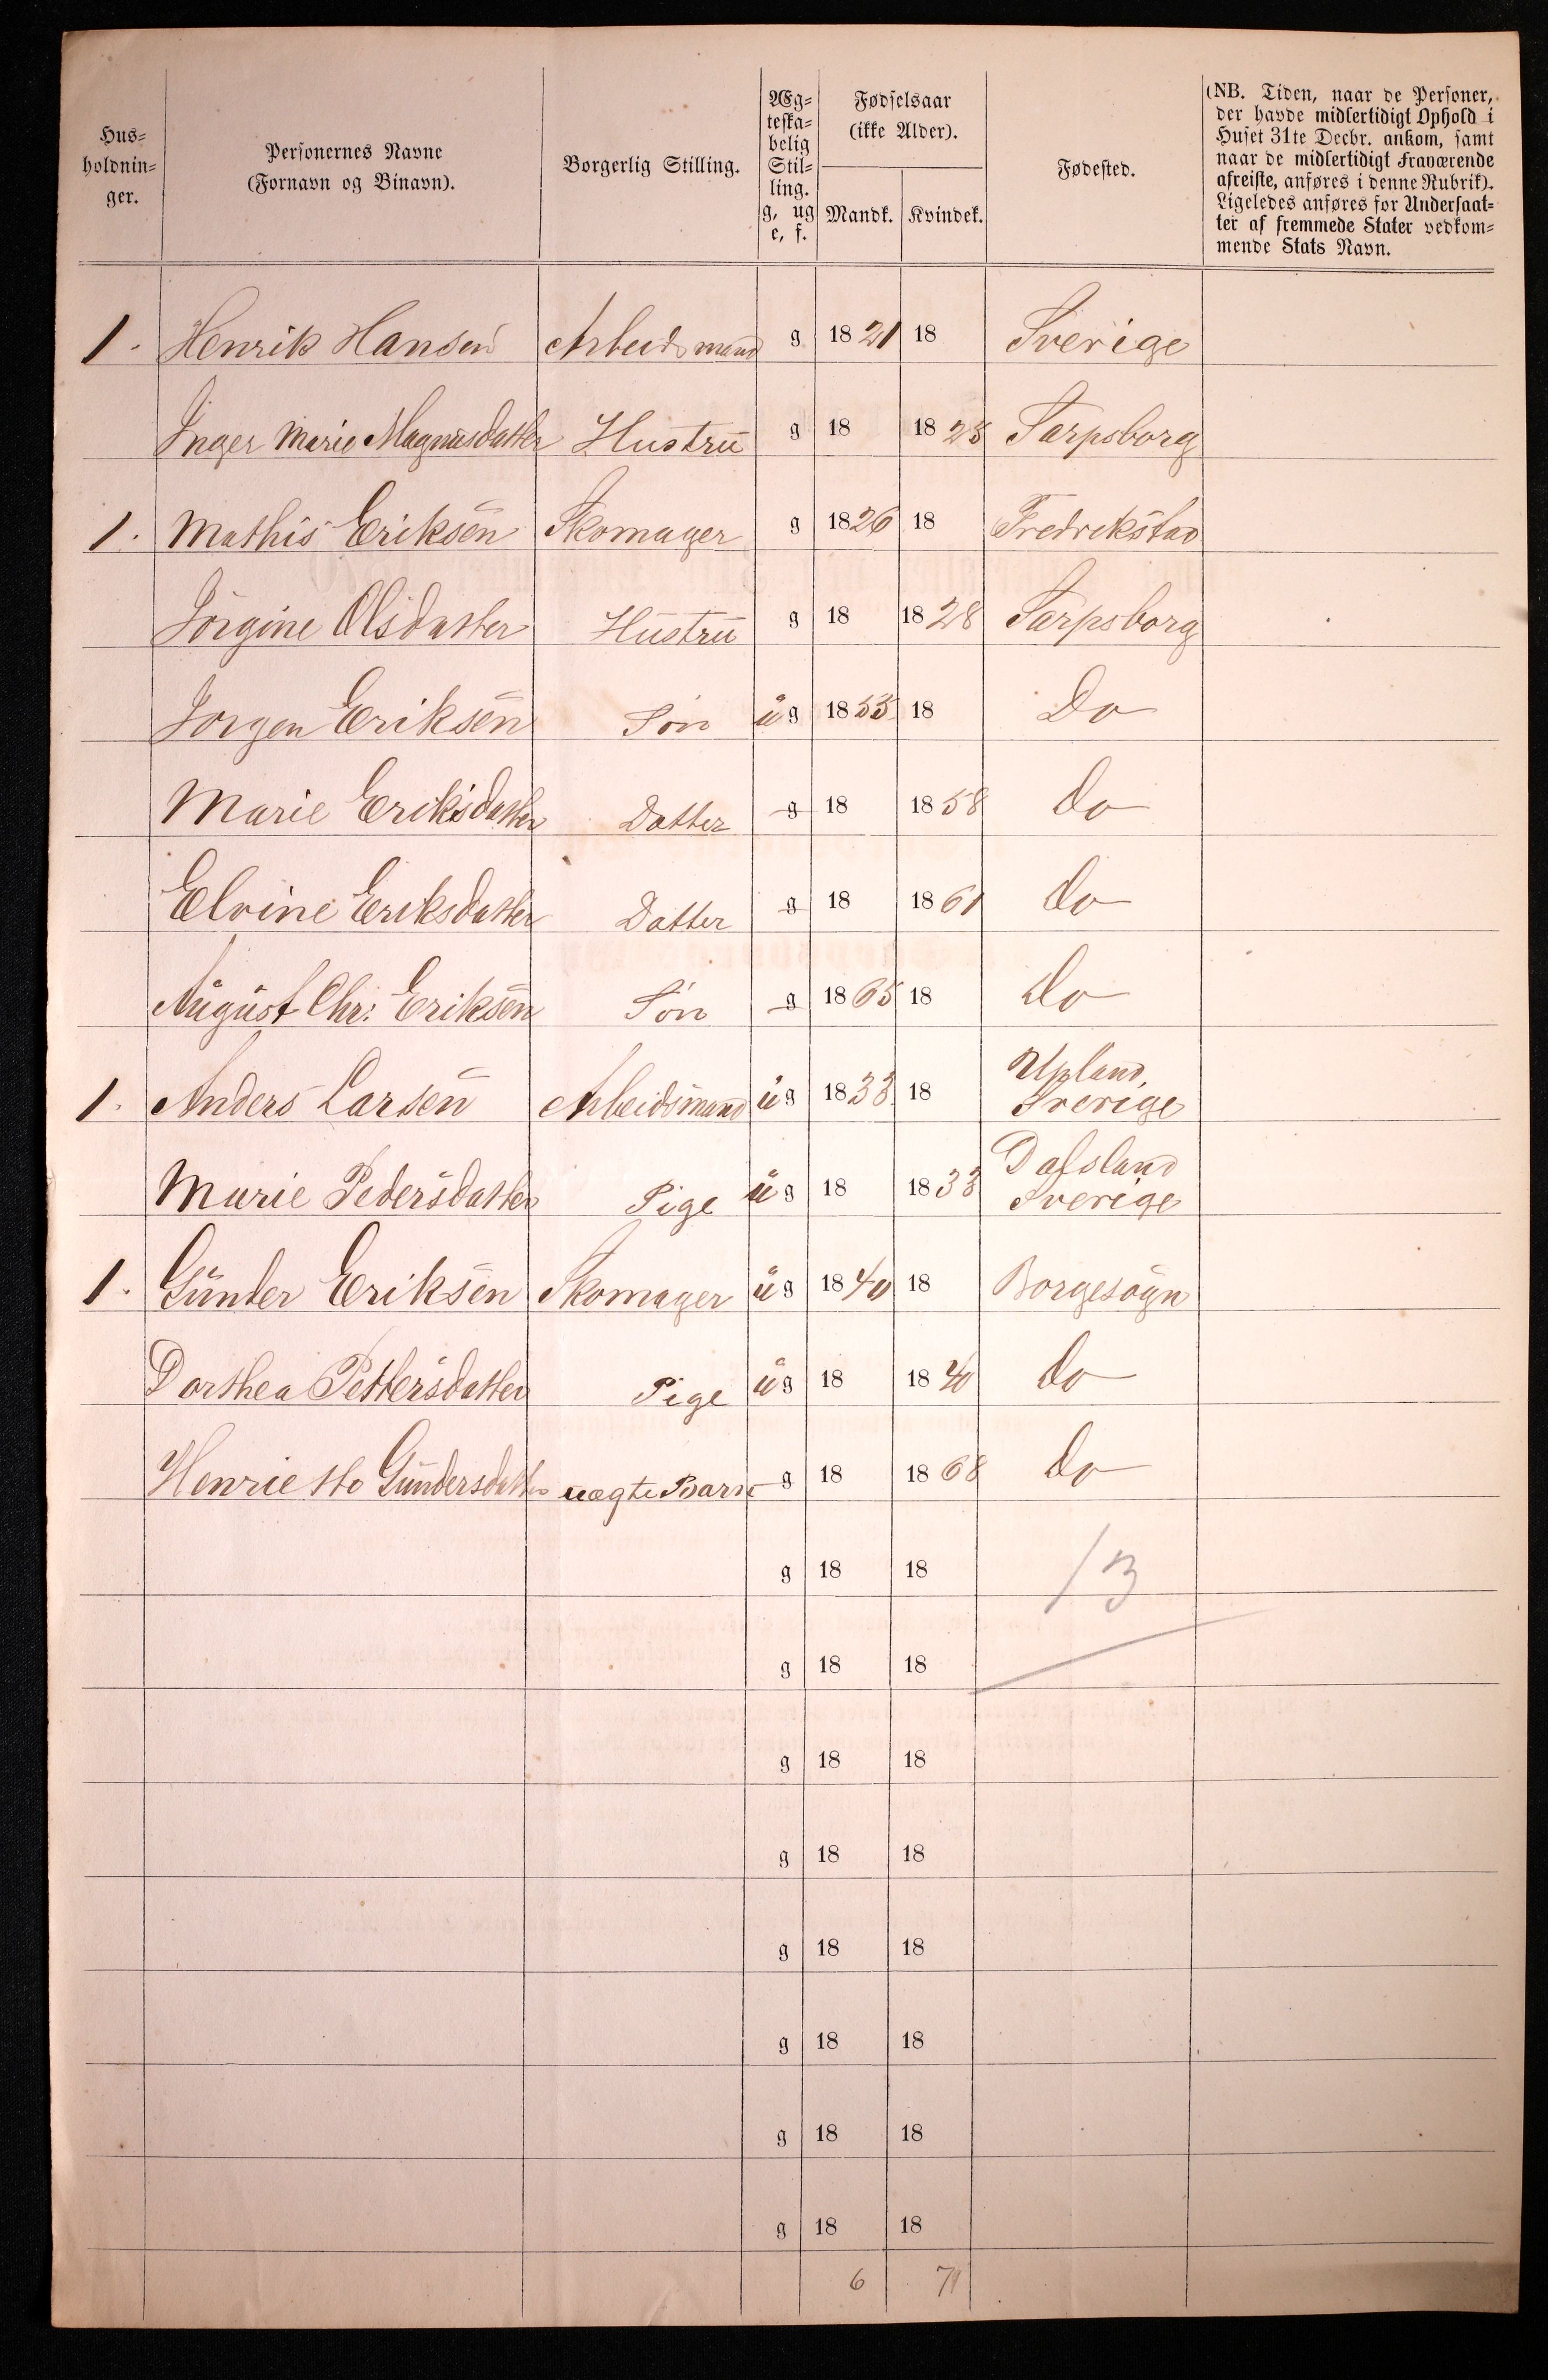 Hus-
holdnin-
ger.
Personernes Navne
(Fornavn og Binavn).
Borgerlig Stilling.
Æg-
teska-
belig
Stil-
ling.
g, ug
e, f.
Fødselsaar
(ikke Alder).
Mandk. Kvindek.
Fødested.
(NB. Tiden, naar de Personer,
der havde midlertidigt Ophold i
Huset 31te Decbr. ankom, samt
naar de midlertidigt Fraværende
afreiste, anføres i denne Rubrik).
Ligeledes anføres for Undersaat-
ter af fremmede Stater vedkom-
mende Stats Navn.
1. Henrik Hansen Arbeidsmand g 1821 18 Sverige
Inger Marie Magnusdatter Hustru g 18 1823 Sarpsborg
1. Mathis Eriksen Skomager g 1826 18 Fredrikstad
Jörgine Olsdatter Hustru g 18 1828 Sarpsborg
Jorgen Eriksen Sön ug 1853 18 Do
Marie Eriksdatter Datter g 18 1858 do
Elvine Eriksdatter Datter g 18 1861 do
August Chr: Eriksen Sön g 1865 18 do
1. Anders Larsen Arbeidsmand ug 1833 18 Upland,
Sverige
Marie Pedersdatter Pige ug 18 1833 Dalsland
Sverige
1. Gunder Eriksen Skomager ug 1840 18 Borgesogn
Dorthea Pettersdatter Pige ug 18 1840 do
Henriette Gundersdatter uægte Barn g 18 1868 do
g 18 18 13
g 18 18
g 18 18
g 18 18
g 18 18
g 18 18
g 18 18
g 18 18
6 7